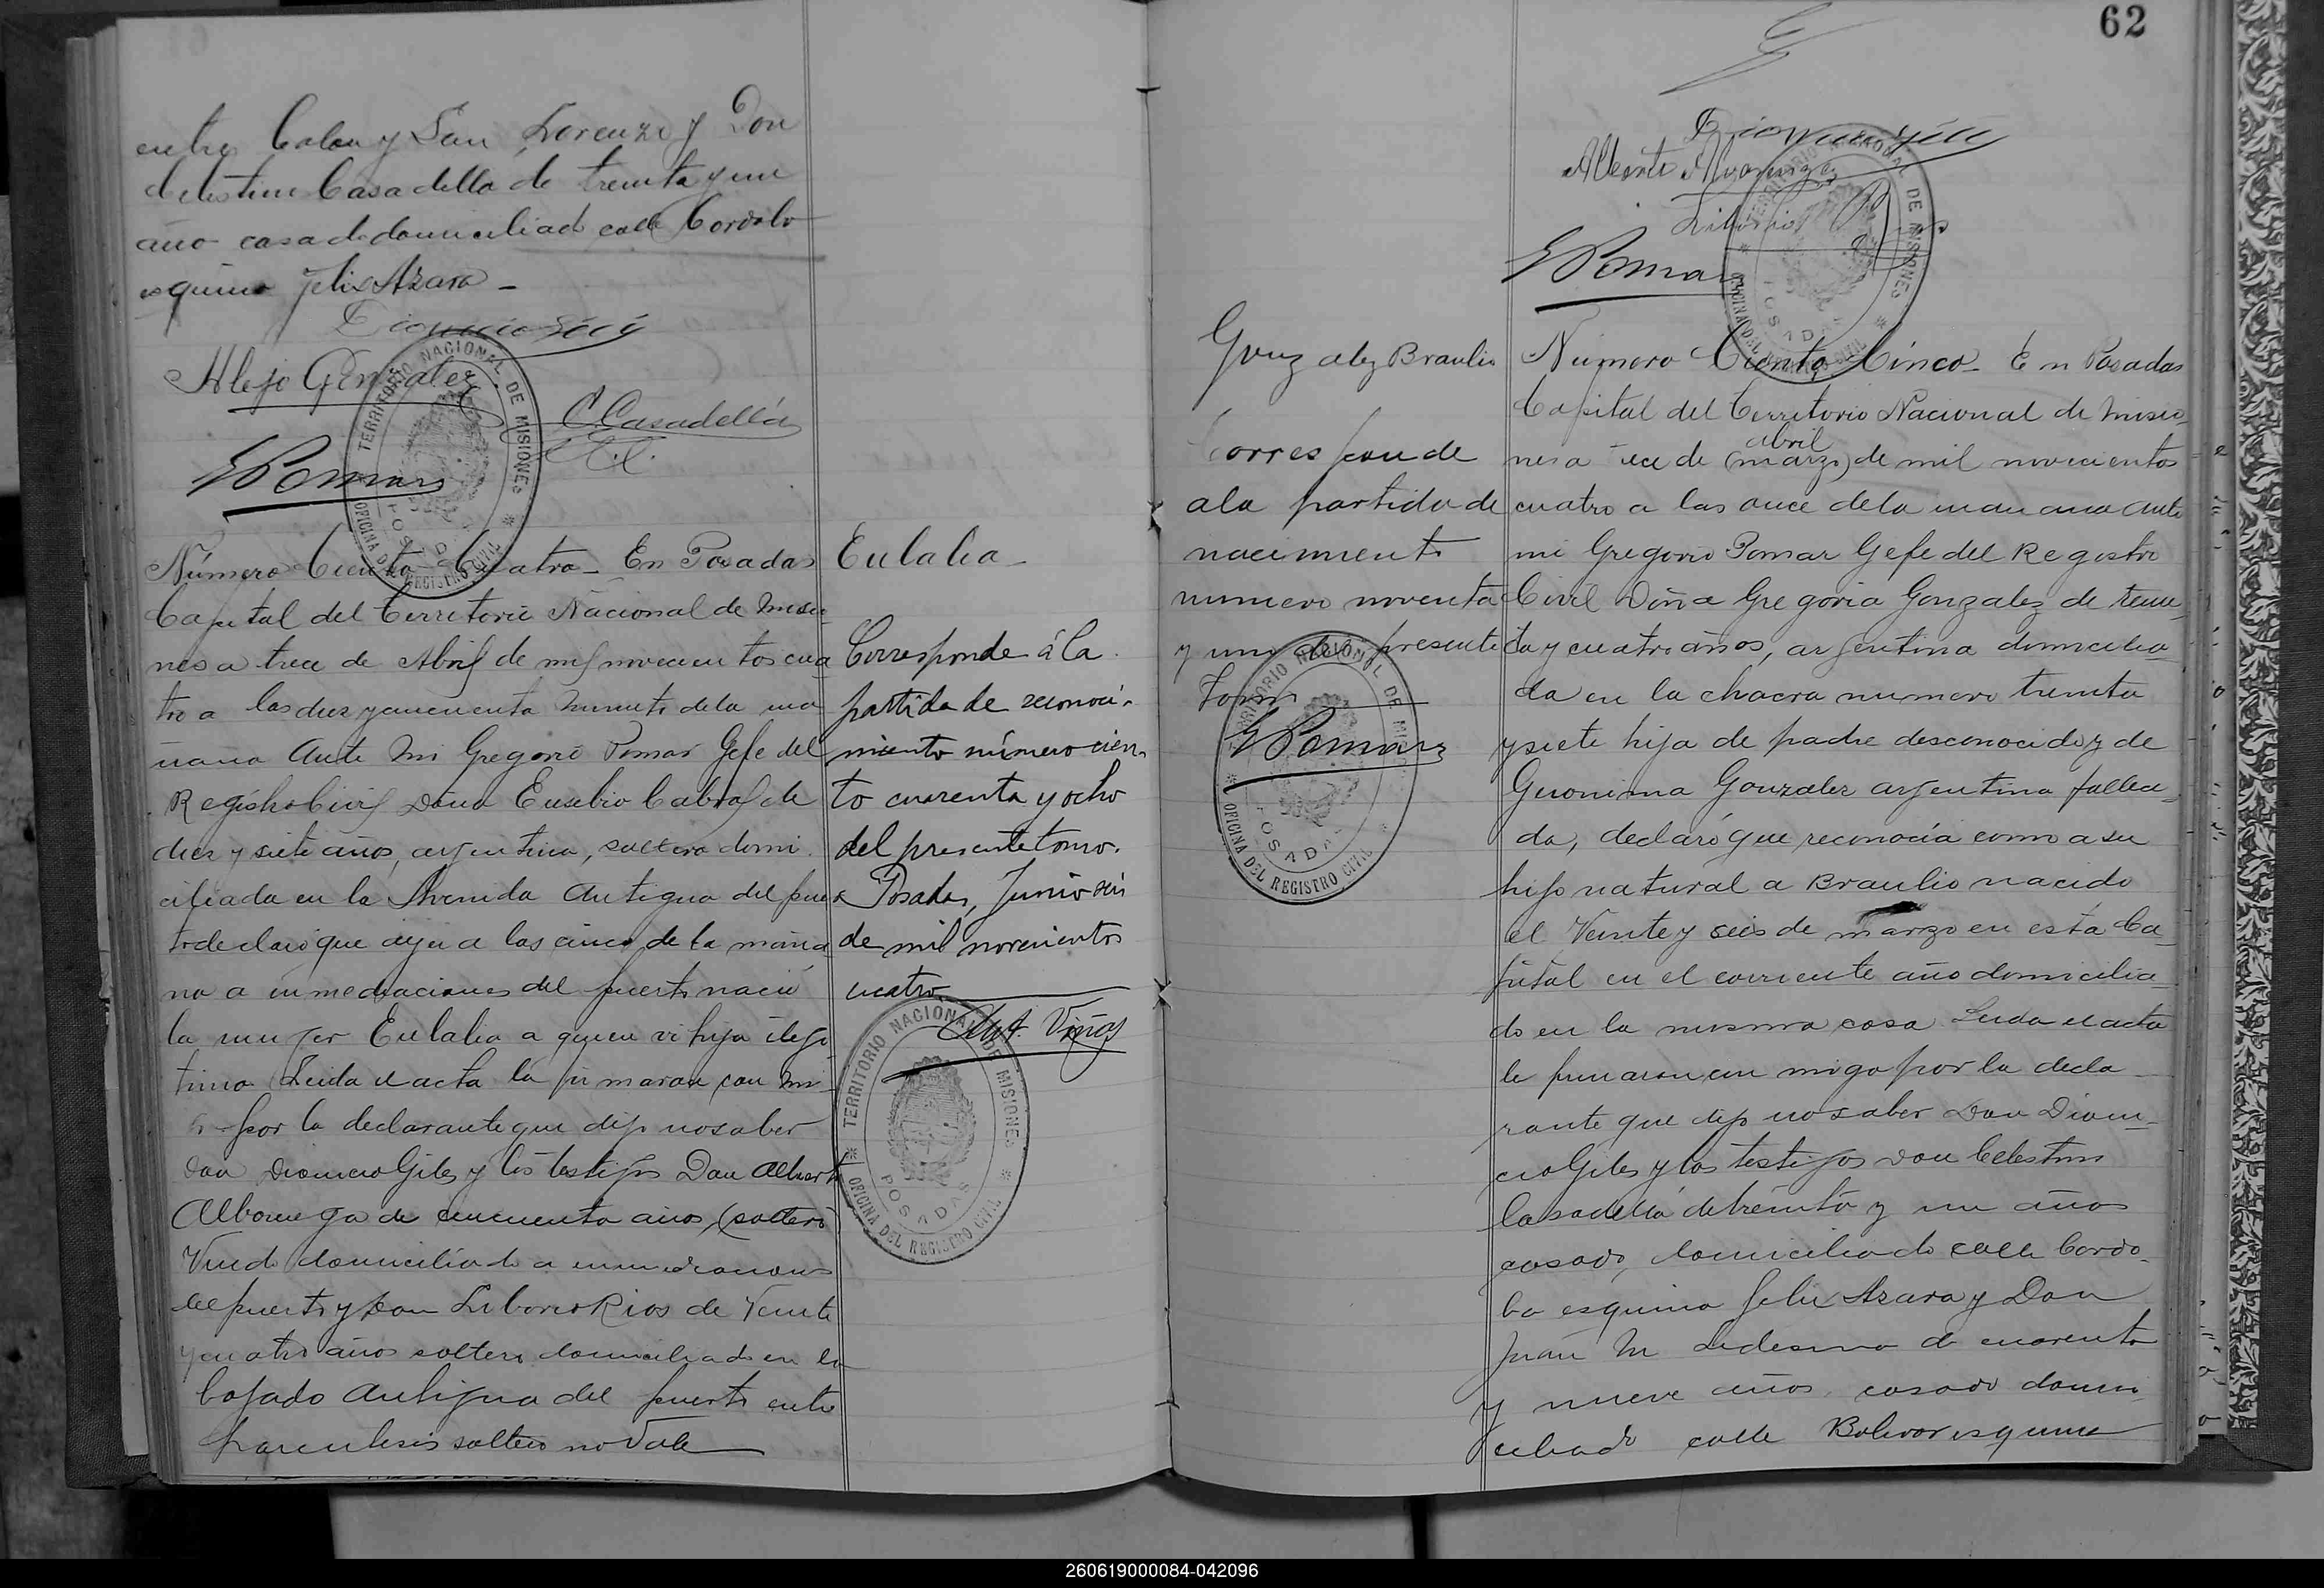 entre Colon y San Lorenzo y Don
Celestino Casadella de treinta y un
año casado domiciliado calle Cordoba
esquina Felix Azara -
Alejo Gonzalez
C. Casadellá
GPomar
TERRITORIO NACIONAL DE MISIONES
OFICINA DEL REGISTRO CIVIL
POSADAS
Número Ciento Cuatro - En Posadas
Capital del Territorio Nacional de Misio
nes a trece de Abril de mil novecientos cua
tro a las diez y cincuenta minutos de la ma
ñana Ante Mi Gregorio Pomar Gefe del
Registro Civil Doña Eusebia Cabral de
diez y siete años, argentina, soltera domi
ciliada en la Avenida Antigua del puer
to declaró que ayer a las cinco de la maña
na a inmediaciones del puerto nació
la muger Eulalia a quien vi hija ilegi
tima Leida el acta la firmaron con mi
go por la declarante que dijo no saber
Don Dionicio Giles y los testigos Don Alberto
Albornega de cincuenta años, (soltero)
Viudo domiciliado a inmediaciones
del puerto y Don Liborio Rios de Veinte
y cuatro años soltero domiciliado en la
bajada Antigua del puerto entre
parentesis soltero no Vale
Eulalia -
Corresponde á la
partida de reconoci-
miento número cien
to cuarenta y ocho
del presente tomo.
Posadas, Junio seis
de mil novecientos
cuatro
Ant. Viñas
TERRITORIO NACIONAL DE MISIONES
OFICINA DEL REGISTRO CIVIL
POSADAS
62
Liborio Rios
GPomar
TERRITORIO NACIONAL DE MISIONES
OFICINA DEL REGISTRO CIVIL
POSADAS
Gonzalez Braulio
Corresponde
a la partida de
nacimiento
numero noventa
y uno del presente
Tomo
GPomar
TERRITORIO NACIONAL DE MISIONES
OFICINA DEL REGISTRO CIVIL
POSADAS
Número Ciento Cinco - En Posadas
Capital del Territorio Nacional de Misio
abril
nes a trece de (marzo) de mil novecientos
cuatro a las once de la manana ante
mi Gregorio Pomar Gefe del Registro
Civil Doña Gregoria Gonzalez de trein
ta y cuatro años, argentina domicilia
da en la chacra numero treinta
y siete hija de padre desconocido y de
Geronima Gonzalez argentina falleci
da, declaró que reconocia como a su
hijo natural a Braulio nacido
el Veinte y seis de marzo en esta Ca
pital en el corriente año domicilia
do en la misma casa Leida el acta
la firmaron conmigo por la decla
rante que dijo no saber Don Dioni
cio Giles y los testigos Don Celestino
Casadellá de treinta y un años
casado, domiciliado calle Cordo-
ba esquina Felix Azara y Don
Juan M Ledesma de cuarenta
y nueve años casado domi
ciliado calle Bolivar esquina
260619000084-042096